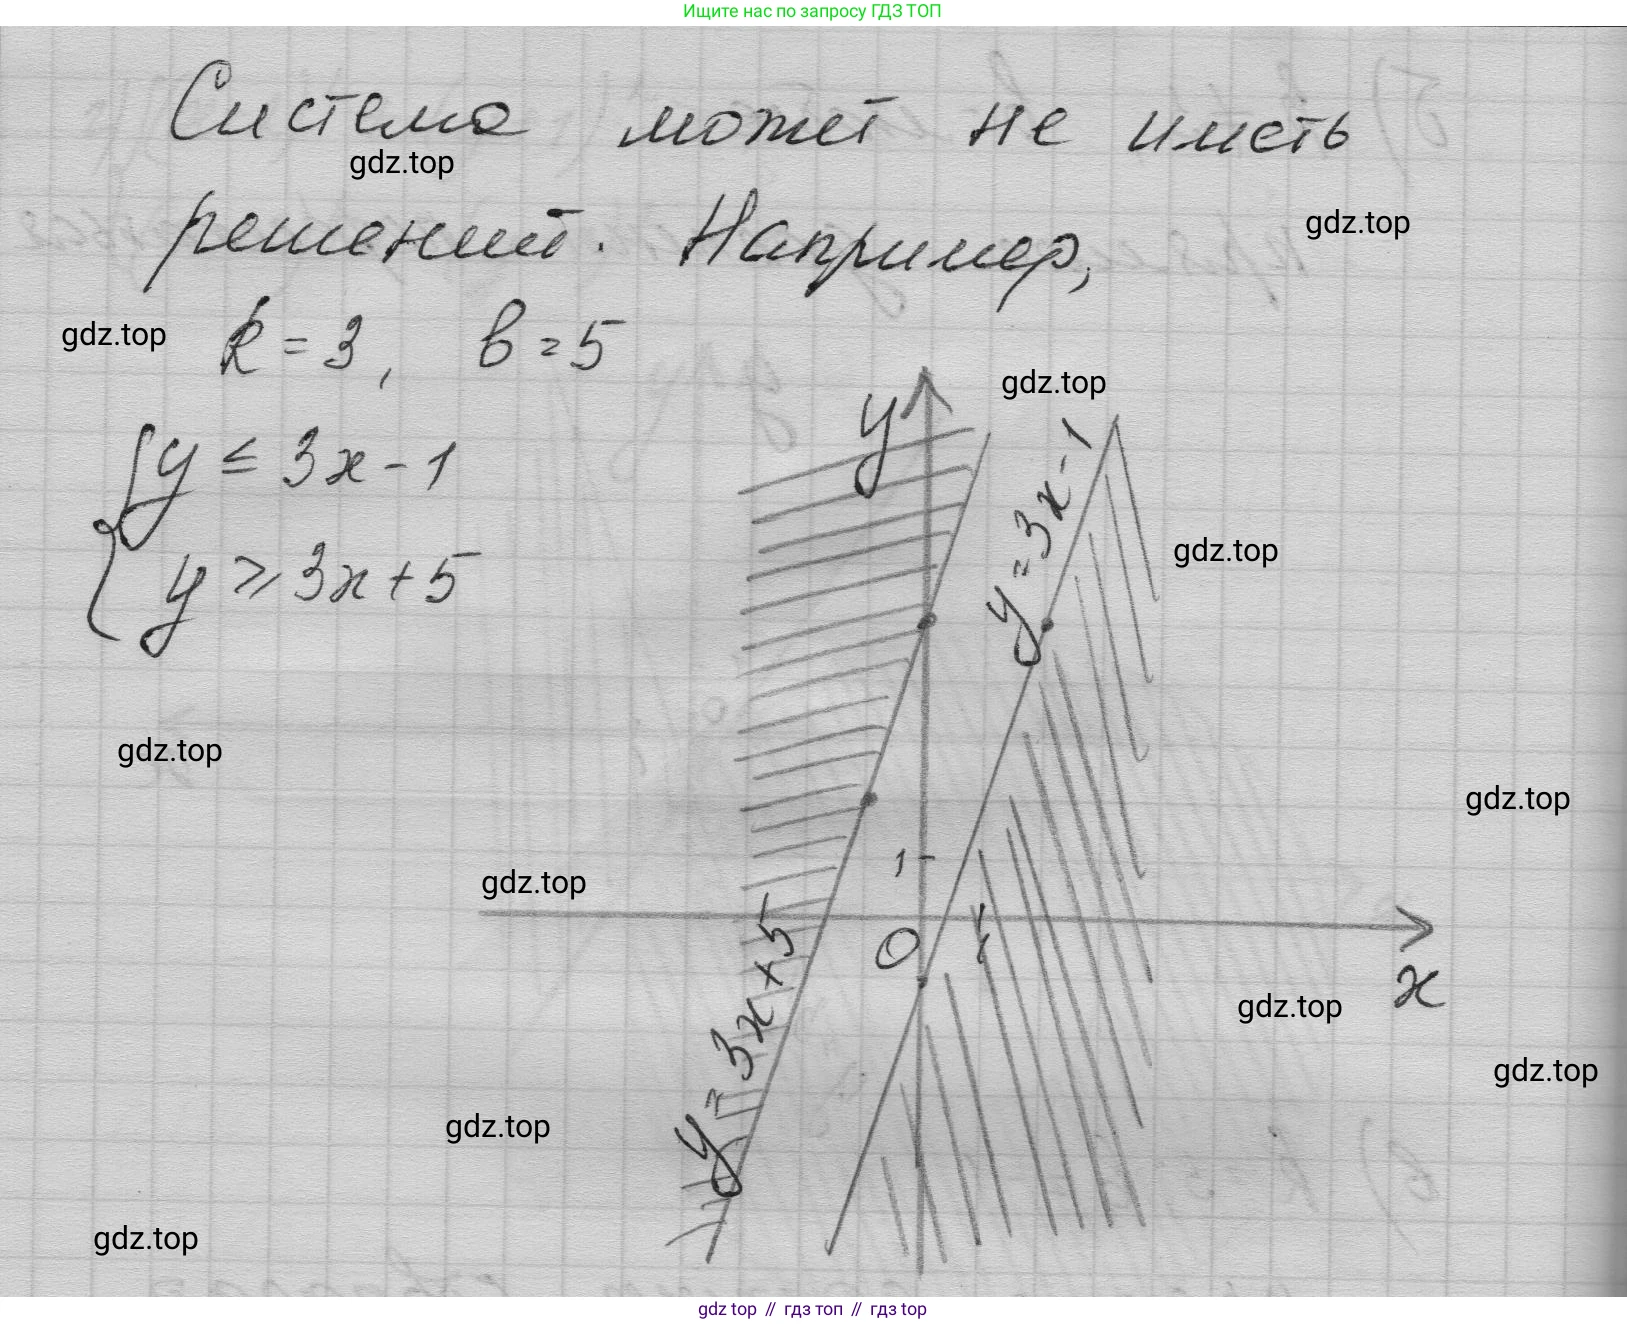 Ищите нас по запросу ГДЗ ТОП
Система может не иметь
gdz.top
решений. Например,
gdz.top
gdz.top
k = 3, b = 5
gdz.top
y
{ y ≤ 3x - 1
y ≥ 3x + 5
y = 3x - 1
gdz.top
gdz.top
gdz.top
1
gdz.top
0
1
x
y = 3x + 5
gdz.top
gdz.top
gdz.top
gdz.top
gdz top // гдз топ // гдз top